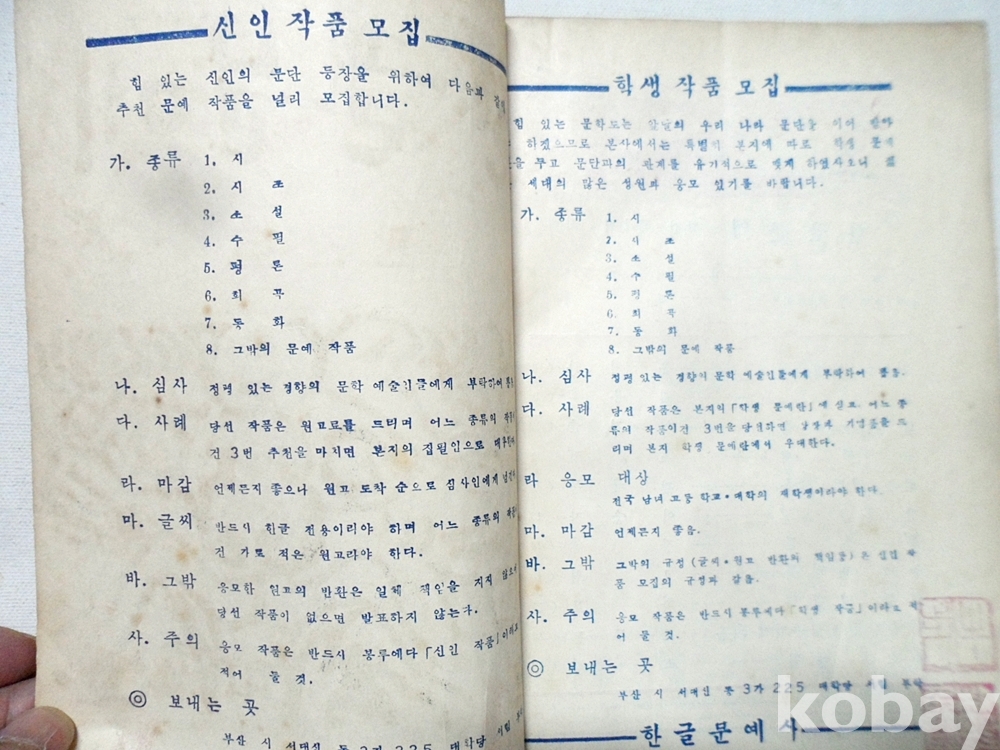 신인 작품 모집
힘 있는 신인의 문단 등장을 위하여 다음과 같이
추천 문예 작품을 널리 모집합니다.
가. 종류 1. 시
2. 시 조
3. 소 설
4. 수 필
5. 평 론
6. 희 곡
7. 동 화
8. 그밖의 문예 작품
나. 심사 정평 있는 경향의 문학 예술인들에게 부탁하여
다. 사례 당선 작품은 원고료를 드리며 어느 종류의
건 3번 추천을 마치면 본지의 집필인으로
라. 마감 언제든지 좋으나 원고 도착 순으로 심사인에게
마. 글씨 반드시 한글 전용이라야 하며 어느 종류의
건 가로 적은 원고라야 한다.
바. 그밖 응모한 원고의 반환은 일체 책임을 지지 않으며
당선 작품이 없으면 발표하지 않는다.
사. 주의 응모 작품은 반드시 봉투에다 「신인 작품」이라고
적어 둘 것.
◎ 보내는 곳
부산 시 서대신 동 3가 225 대학당
학생 작품 모집
힘 있는 문학도는 앞날의 우리 나라 문단을 이어 받아
하겠으므로 본사에서는 특별히 본지에 따로 학생 문예
을 두고 문단과의 관계를 유기적으로 맺게 하였사오니
세대의 많은 성원과 응모 있기를 바랍니다.
가. 종류 1. 시
2. 시 조
3. 소 설
4. 수 필
5. 평 론
6. 희 곡
7. 동 화
8. 그밖의 문예 작품
나. 심사 정평 있는 경향의 문학 예술인들에게 부탁하여 뽑음.
다. 사례 당선 작품은 본지의 「학생 문예란」에 싣고 어느 종
류의 작품이건 3번을 당선하면 상장과 기념품을 드
리며 본지 학생 문예란에서 우대한다.
라 응모 대상
전국 남녀 고등 학교·대학의 재학생이라야 한다.
마. 마감 언제든지 좋음.
바. 그밖 그밖의 규정 (글씨·원고 반환의 책임등)은 신인 작
품 모집의 규정과 같음.
사. 주의 응모 작품은 반드시 봉투에다 「학생 작품」이라고 적
어 둘 것.
◎ 보내는 곳
부산 시 서대신 동 3가 225 대학당
한글문예사
kobay